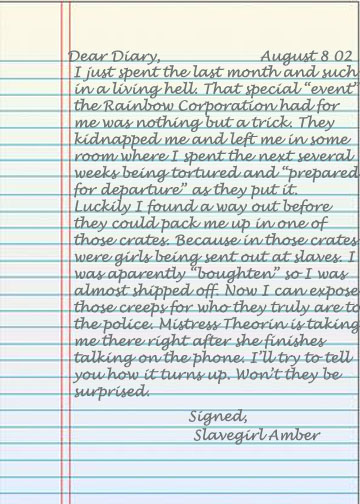 Dear Diary, August 8 02
I just spent the last month and such
in a living hell. That special "event"
the Rainbow Corporation had for
me was nothing but a trick. They
kidnapped me and left me in some
room where I spent the next several
weeks being tortured and "prepared
for departure" as they put it.
Luckily I found a way out before
they could pack me up in one of
those crates. Because in those crates
were girls being sent out at slaves. I
was aparently "boughten" so I was
almost shipped off. Now I can expose
those creeps for who they truly are to
the police. Mistress Theorin is taking
me there right after she finishes
talking on the phone. I'll try to tell
you how it turns up. Won't they be
surprised.
Signed,
Slavegirl Amber